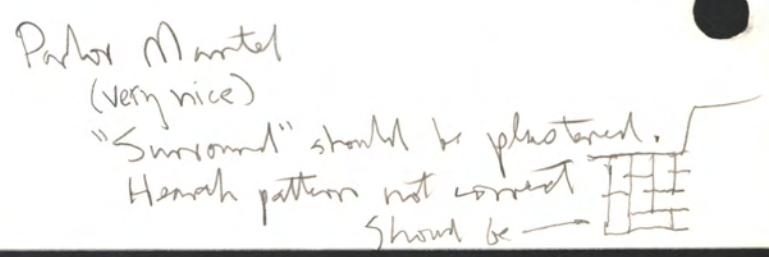 Parlor Mantel
(very nice)
"Surround" should be plastered.
Hearth pattern not correct
Should be